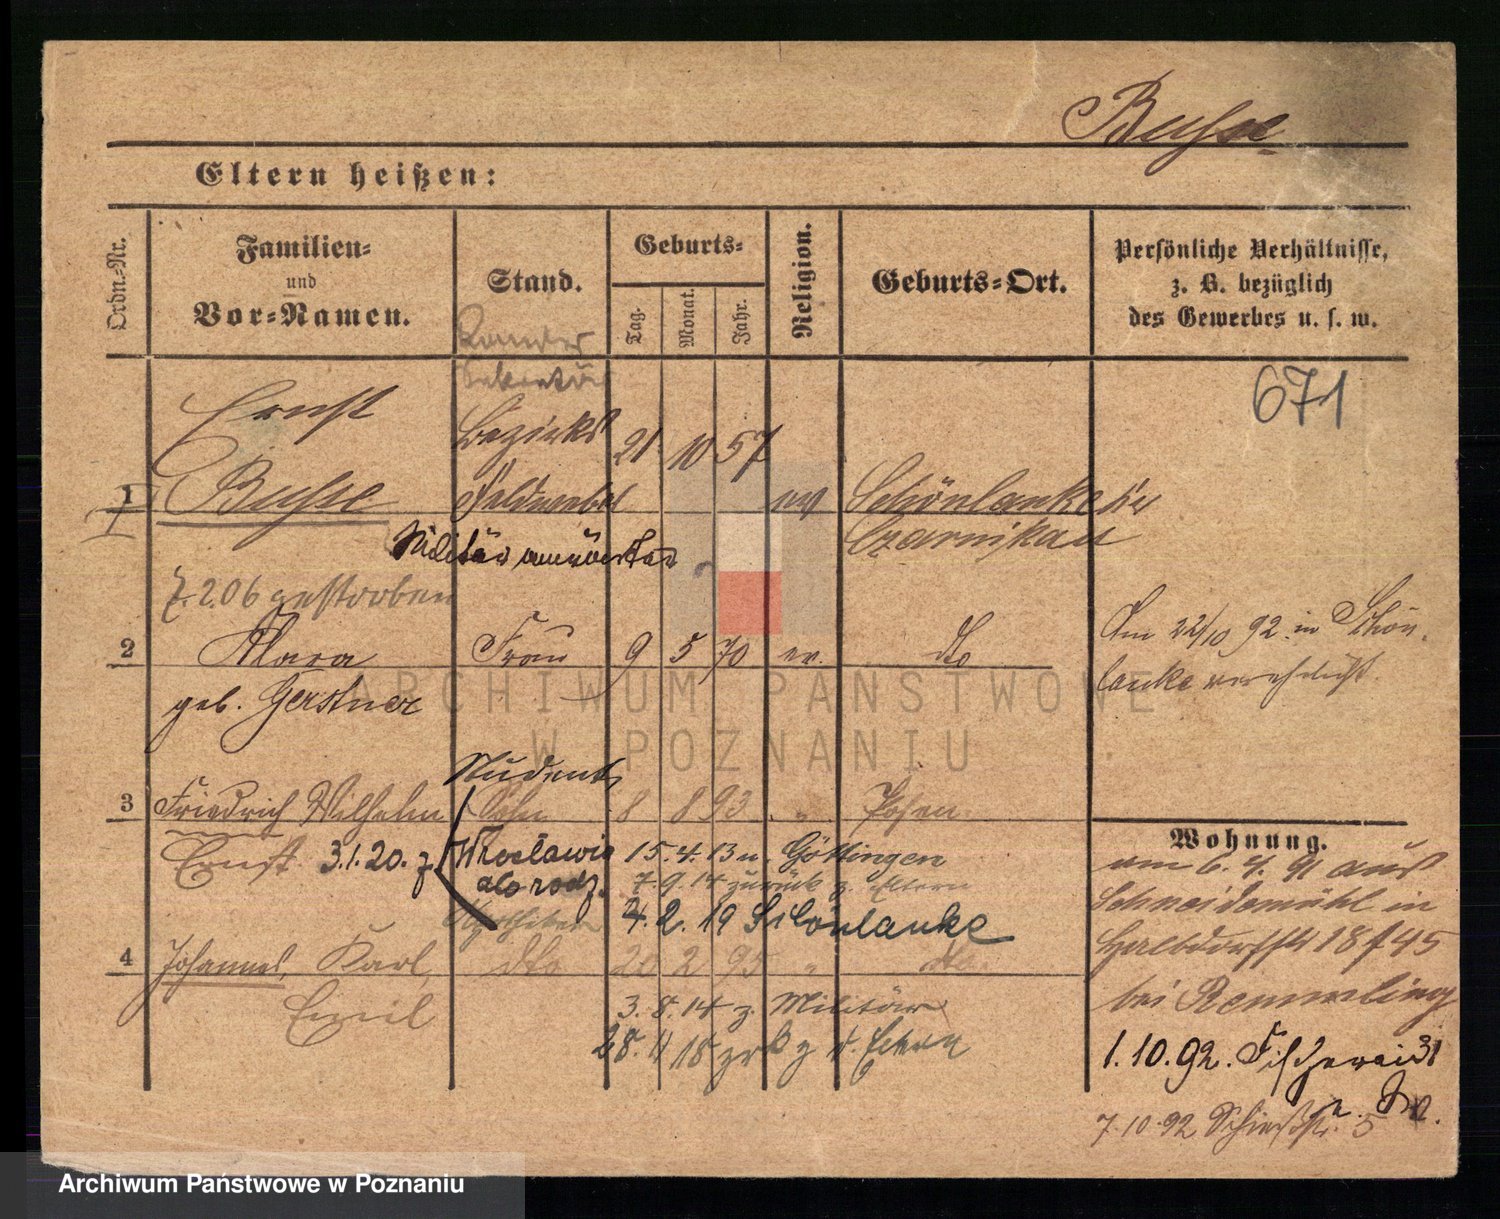 Busse
Eltern heißen:
Ordn.-Nr.
Familien-
und
Vor-Namen.
Stand.
Geburts-
Tag.
Monat.
Jahr.
Religion.
Geburts-Ort.
Persönliche Verhältnisse,
z. B. bezüglich
des Gewerbes u. s. w.
671
Ernst
Bezirks
21 10 57
1 Busse Feldwebel ev Schönlanke
Czarnikau
Militäranwärter
7.2.06 gestorben
2 Klara Frau 9 5 70 ev. dto
geb. Gerstner
Am 22/10 92 in Schön-
lanke verehelicht.
Student
3 Friedrich Wilhelm Sohn 8 8 93 " Posen
Ernst 3.1.20. z. Wrocławia 15.4.13 n. Göttingen
als rodz. 7.9.14 zurück z. Eltern
4.2.19 Schönlanke
4 Johannes, Karl, dto 20 2 95 " dto
Emil
3.8.14 z. Militär
28.11 18 zrk z d. Eltern
Wohnung.
am 6.4.91 aus
Schneidemühl in
Halbdorfstr 18
bei Remmling
1.10.92. Fischerei 31
7.10.92 Schießstr. 5
ARCHIWUM PAŃSTWOWE
W POZNANIU
Archiwum Państwowe w Poznaniu